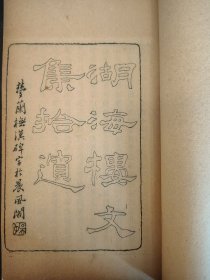 湖海樓文
集拾遺
楚蘭橅漢碑字於晨風閣